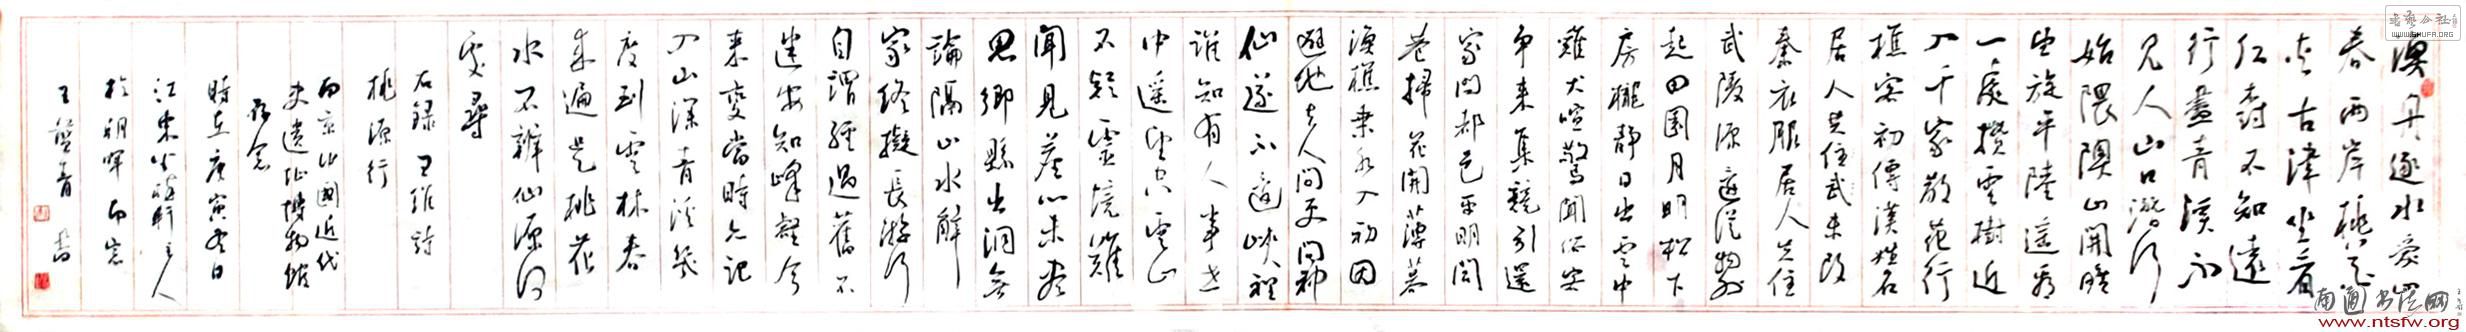 漁舟逐水愛山
春兩岸桃花
夾古津坐看
紅樹不知遠
行盡青溪不
見人山口潛行
始隈隩山開曠
望旋平陸遙看
一處攢雲樹近
入千家散花竹
樵客初傳漢姓名
居人共住武未改
秦衣服居人共住
武陵源還從物外
起田園月明松下
房櫳靜日出雲中
雞犬喧驚聞俗客
爭來集競引還
家問都邑平明閭
巷掃花開薄暮
漁樵乘水入初因
避地去人間更問神
仙遂不還峽裡
誰知有人事世
中遙望空雲山
不疑靈境難
聞見塵心未盡
思鄉縣出洞無
論隔山水辭
家終擬長游衍
自謂經過舊不
迷安知峰壑今
來變當時只記
入山深青溪幾
度到雲林春
來遍是桃花
水不辨仙源何
處尋
右錄王維詩
桃源行
南京 國近代
史遺址博物館
存念
時在庚寅冬日
江東 軒主人
於明暉南窗
王 青 書
書藝公社
WWW.SHUFA.ORG
南通书法网
www.ntsfw.org